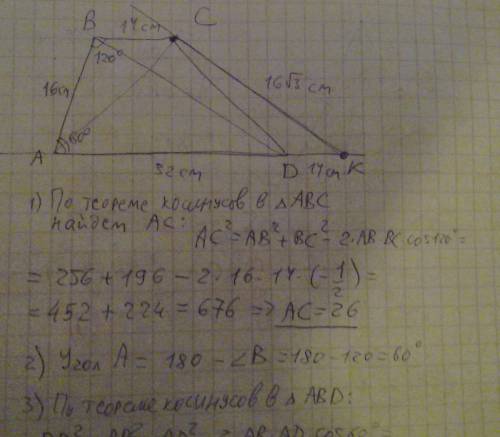 B 14 см C
120°
16см 16√3 см
60°
A 32 см D 14см K
1) По теореме косинусов в ΔABC
найдем AC:
AC² = AB² + BC² - 2·AB·BC cos120° =
= 256 + 196 - 2·16·14·(-1/2) =
= 452 + 224 = 676 => AC = 26
2) Угол A = 180 - ∠B = 180 - 120 = 60°
3) По теореме косинусов в ΔABD: